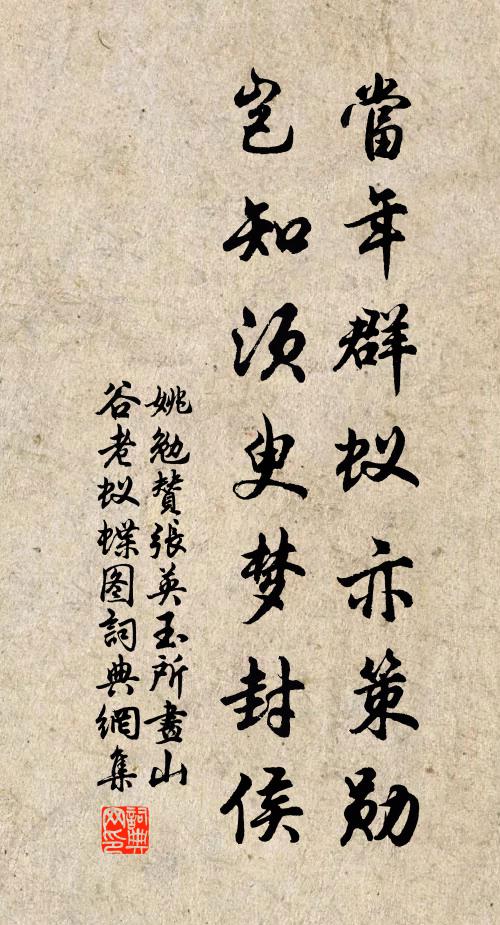 當年群蚁亦策勋
岂知须叟梦封侯
姚勉赞張英玉所畫山
谷老蚁蝶图詞典網集
詞典网印